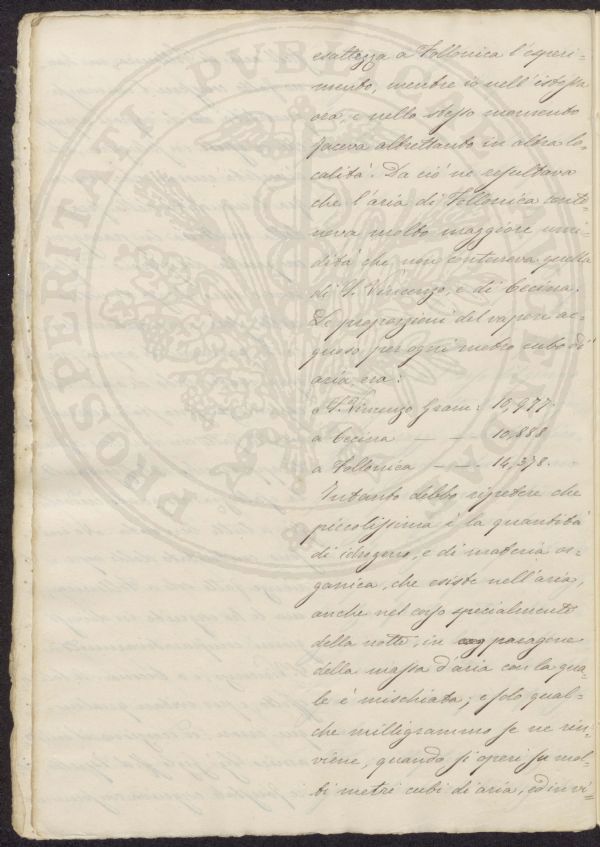 esattezza a Follonica l'esperi-
mento, mentre io nell'istessa
ora, e nello stesso momento
faceva altrettanto in altra lo-
calità. Da ciò ne resultava
che l'aria di Follonica conte-
neva molto maggiore umi-
dità che non conteneva quella
di S. Vincenzo, e di Cecina.
Le proporzioni del vapore ac-
queo, per ogni metro cubo di
aria, era:
a S. Vincenzo Gram: 10,977.
a Cecina — — 10,888
a Follonica — — 14,378.
Intanto debbo ripetere che
piccolissima è la quantità
di idrogeno, e di materia or-
ganica, che esiste nell'aria,
anche nel corso specialmente
della notte, in paragone
della massa d'aria con la qua-
le è mischiata; e solo qual-
che milligrammo se ne rin-
viene, quando si operi su mol-
ti metri cubi di aria, ed in vi-
PROSPERITATI PUBLICAE AUGENDAE